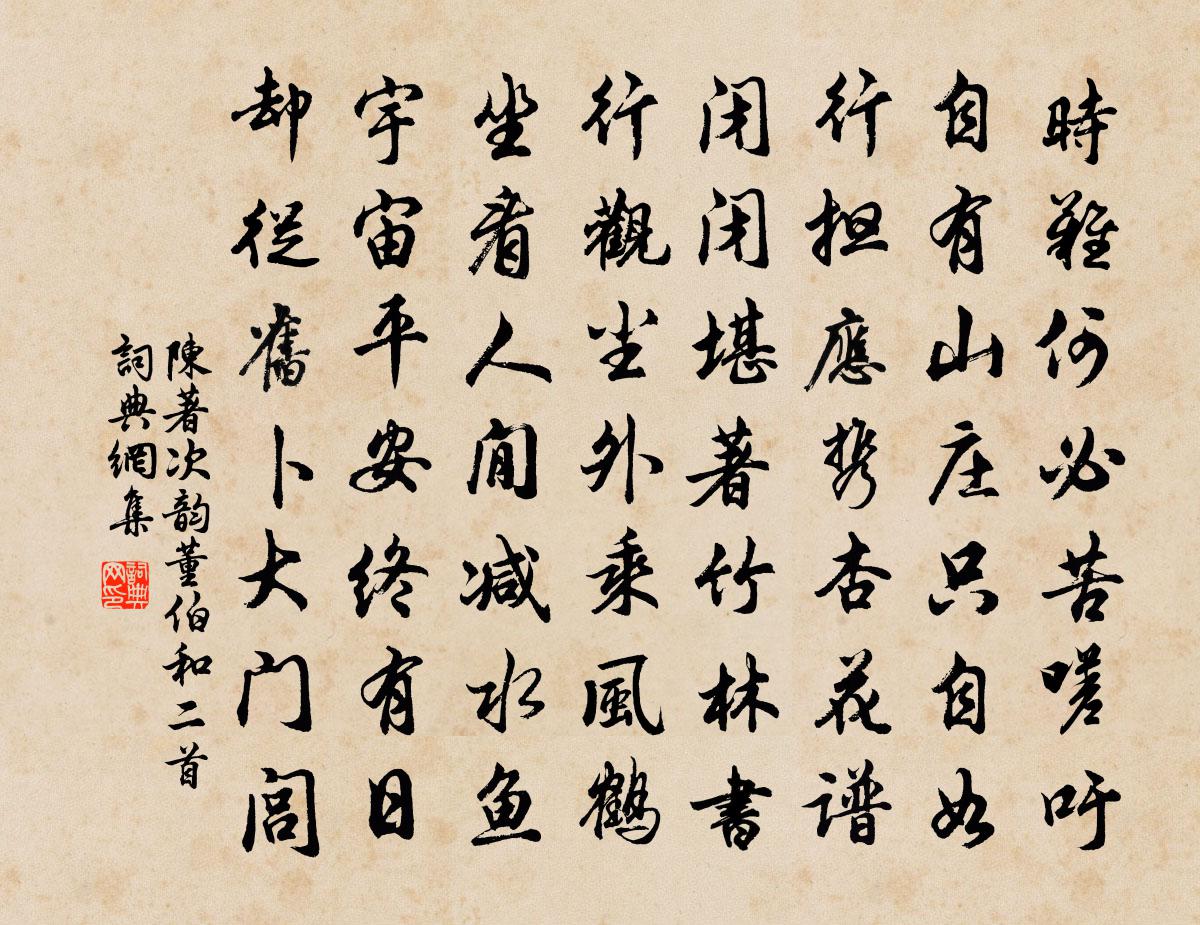 時難何必苦嗟吁
自有山庄只自如
行担應携杏花谱
闭闭堪著竹林書
行觀尘外乘風鶴
坐看人间减水鱼
宇宙平安终有日
却從舊卜大门闾
陳著次韵董伯和二首
詞典網集
詞典网印